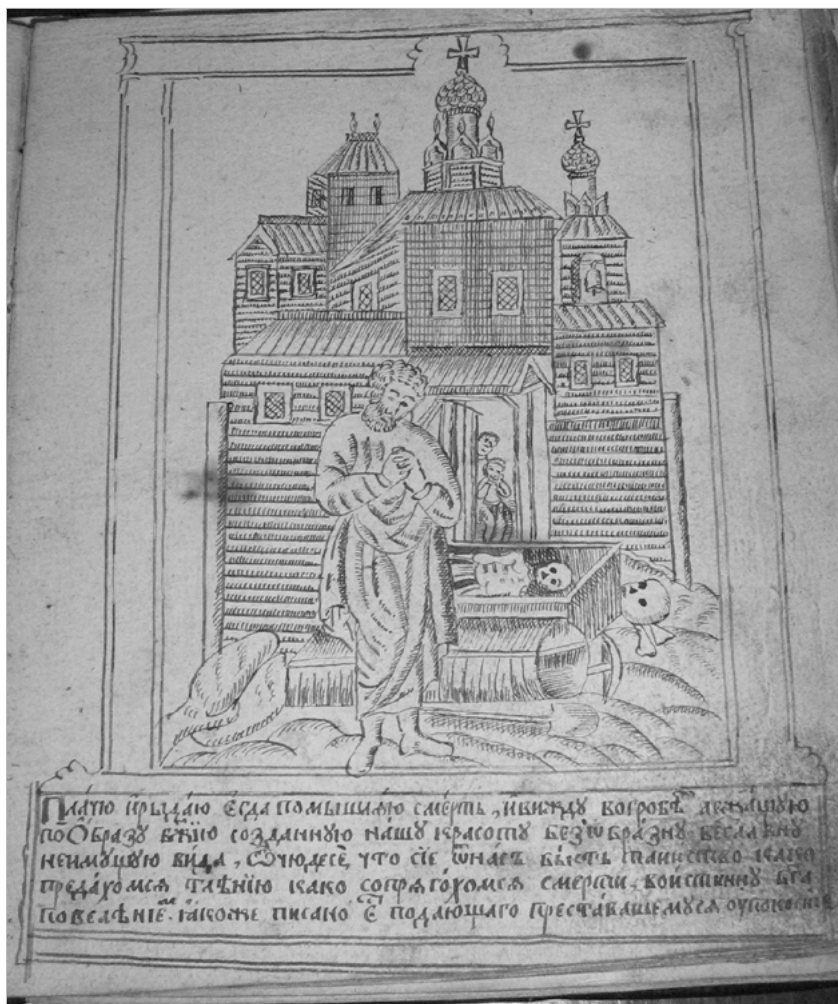 Пла́чю и҆ рыда́ю є҆гда помышлѧ́ю сме́рть, и҆ ви́жду во гробѣ́хъ лежа́щую
по Ѻ҆́бразу бж҃їю созда́нную на́шу красоту безѡ́бразну бесла́вну
неиму́щую ви́да, Ѽ чюдесѐ, что сїѐ ѿ на́съ бы́сть таи́нство, ка́кѡ
преда́хомсѧ тлѣ́нїю како сопрѧго́хомсѧ сме́рти, вои́стинну бг҃а
повелѣ́нїемъ ꙗ҆́коже писано є҆́ подаю́щаго преста́вльшемусѧ оупокое́нїе